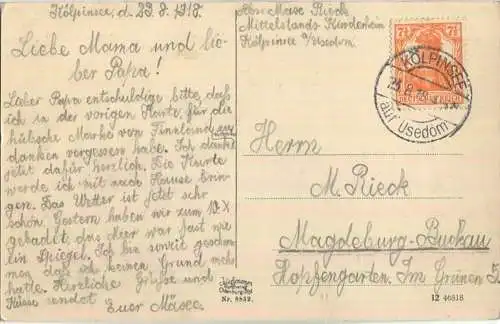 Kölpinsee d. 23.8.1918.
Liebe Mama und lie-
ber Papa!
Lieber Papa entschuldige bitte, daß
ich in der vorigen Karte, für die
hübsche Marke vom Finnland zu
danken vergessen habe. Ich danke
jetzt dafür herzlich. Die Karte
werde ich mit nach Hause brin-
gen. Das Wetter ist jetzt sehr
schön. Gestern haben wir zum 12. X
gebadet, das Meer war fast wie
ein Spiegel. Ich bin soweit geschwom
men daß ich keinen Grund mehr
hatte. Herzliche Grüße und
Küsse sendet
Euer Mäxe.
Abs: Maxe Rieck
Mittelstands Kinderheim
Kölpinsee a/Usedom.
7½ 7½
DEUTSCHES REICH
KÖLPINSEE
23.8.18
auf Usedom
Herrn
M. Rieck
Magdeburg-Buckau
Hopfengarten. Im Grünen 5.
Nr. 8852.
12 46818